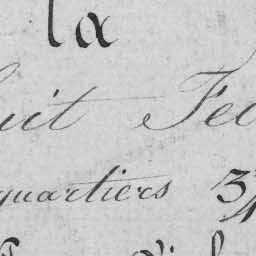 la
uit Fe
quartiers 3